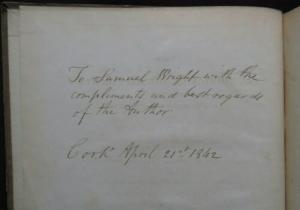 To Samuel Wright with the
compliments and best regards
of the Author
Cork April 21st 1842